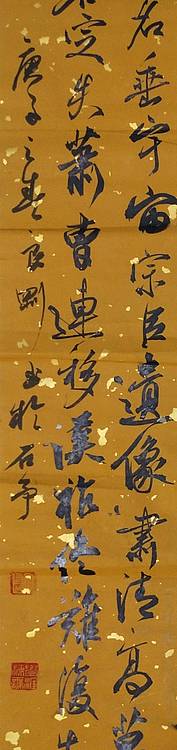 名垂宇宙宗臣遺像肅清高
若定失蕭曹運移漢祚終難復
庚子之春 書於石